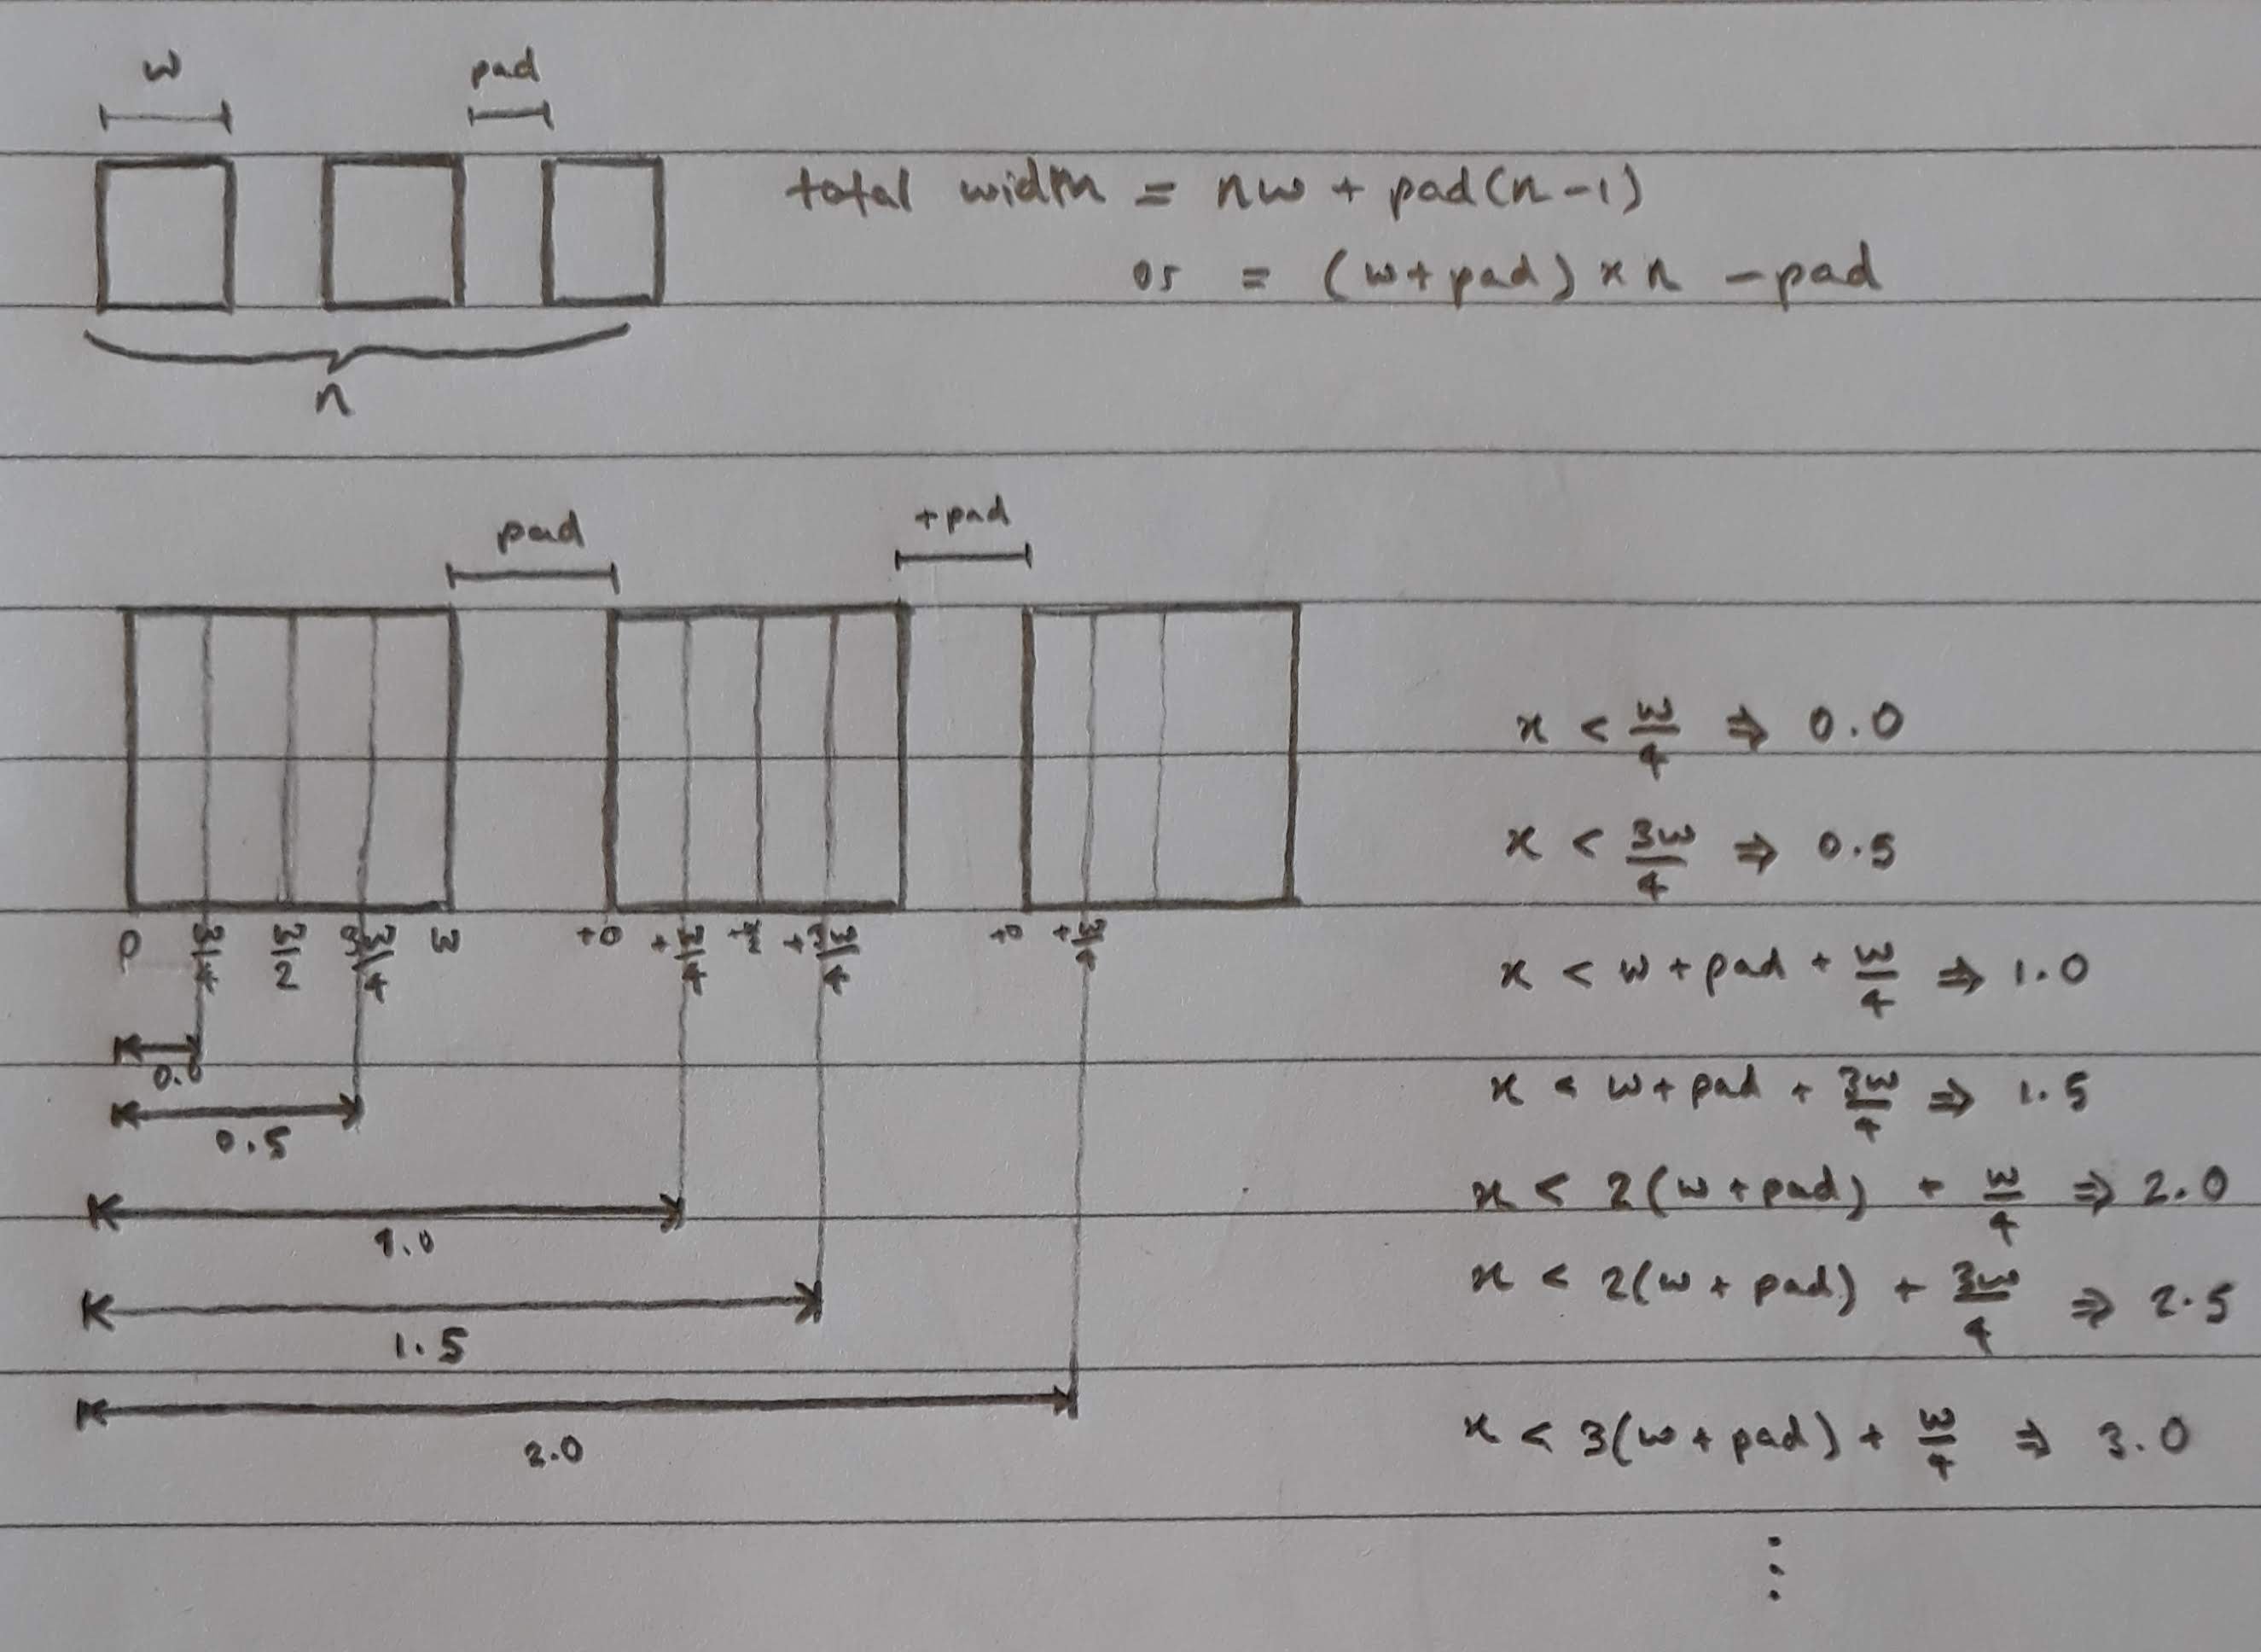 w pad
total width = nw + pad(n-1)
or = (w+pad) x n - pad
n
pad +pad
0 w/4 w/2 3w/4 w +0 +w/4 +3w/4 +0 +w/4
0.0
0.5
1.0
1.5
2.0
x < w/4 ⇒ 0.0
x < 3w/4 ⇒ 0.5
x < w + pad + w/4 ⇒ 1.0
x < w + pad + 3w/4 ⇒ 1.5
x < 2(w + pad) + w/4 ⇒ 2.0
x < 2(w + pad) + 3w/4 ⇒ 2.5
x < 3(w + pad) + w/4 ⇒ 3.0
⋮